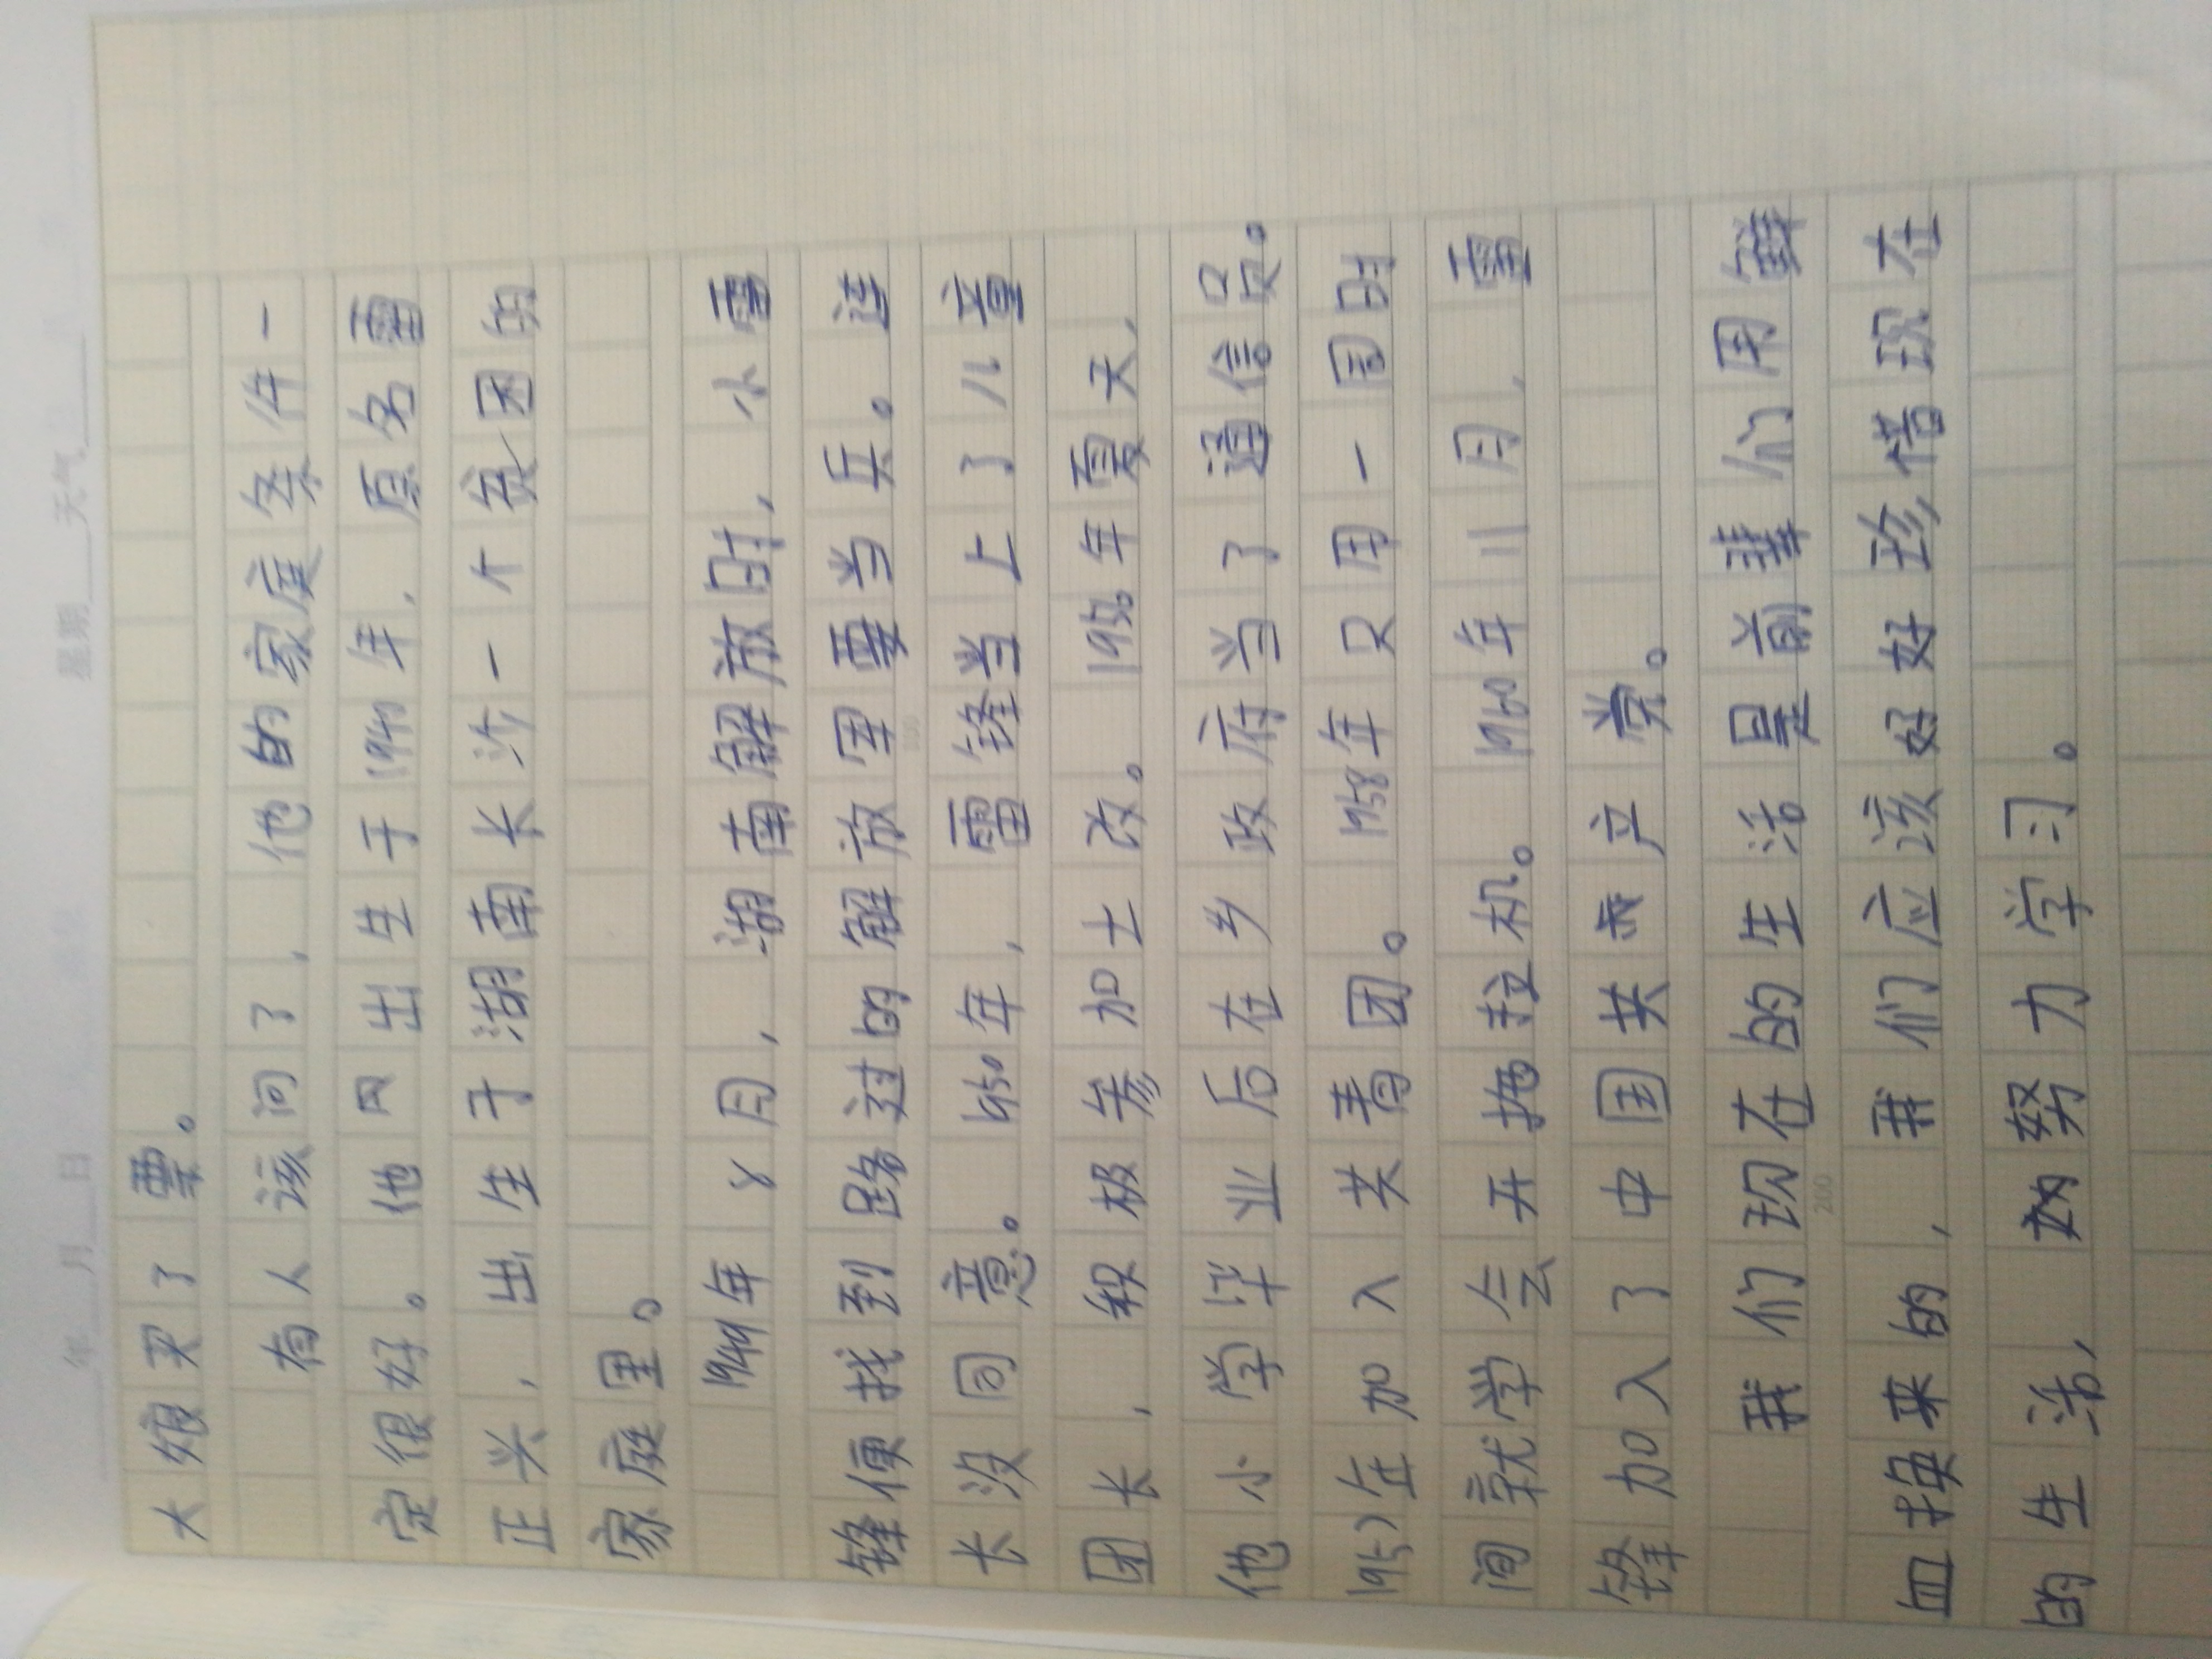 年 月 日 星期 天气
大娘买了票。
有人该问了，他的家庭条件一
定很好。他冈出生于1940年，原名雷
正兴，出生于湖南长沙一个贫困的
家庭里。
1949年8月，湖南解放时，小雷
锋便找到路过的解放军要当兵。连
长没同意。1950年，雷锋当上了儿童
团长，积极参加土改。1956年夏天，
他小学毕业后在乡政府当了通信员。
1957年加入共青团。1958年只用一周时
间就学会开拖拉机。1960年11月，雷
锋加入了中国共产党。
我们现在的生活是前辈们用鲜
血换来的，我们应该好好珍惜现在
200
的生活，努力学习。